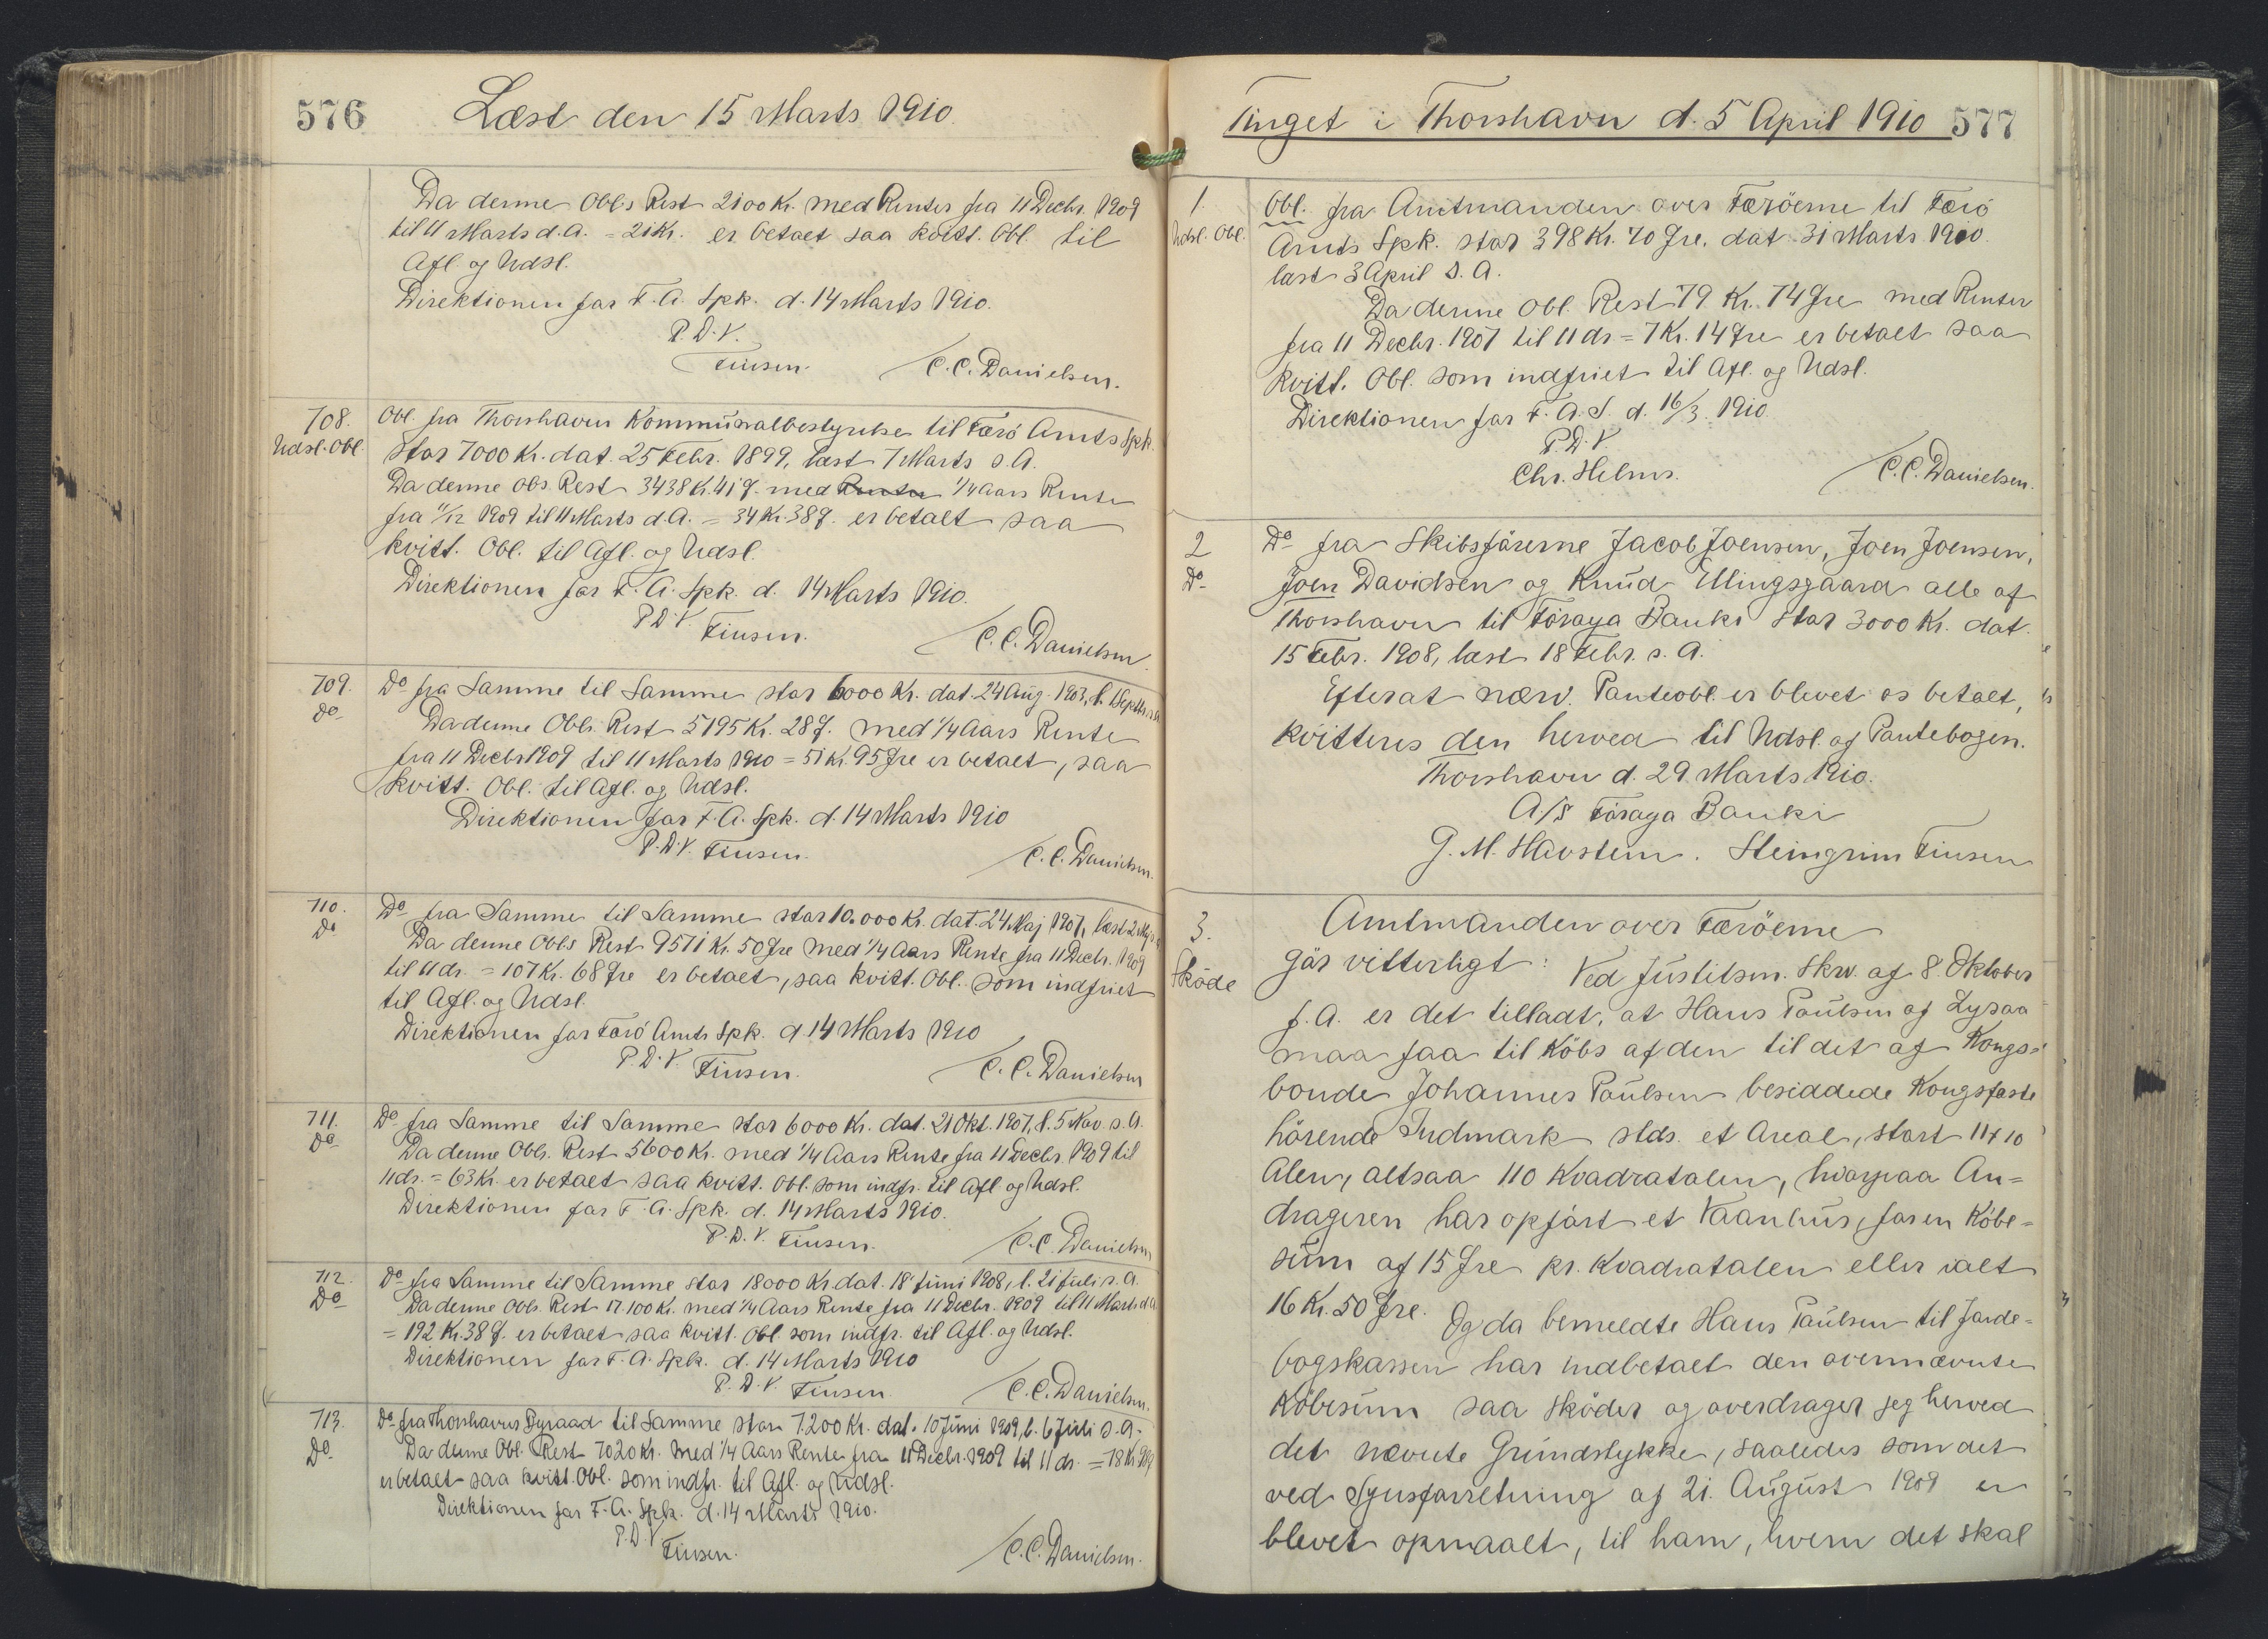 576
Læst den 15 Marts 1910.
Da denne Obl.s Rest 2100 Kr. med Renter fra 11 Decbr. 1909
til 11 Marts d. A. = 21 Kr. er betalt saa kvitt. Obl. til
Afl. og Udsl.
Direktionen for F. A. Spk. d. 14 Marts 1910.
P. D. V.
Finsen. C. C. Danielsen.
708. Obl. fra Thorshavns Kommunalbestyrelse til Færö Amts Spk.
Udsl. Obl. stor 7000 Kr. dat. 25 Febr. 1899, læst 7 Marts s. A.
Da denne Obs. Rest 3438 Kr. 41 Ø. med Renter 1/4 Aars Rente
fra 11/12 1909 til 11 Marts d. A. = 34 Kr. 38 Ø. er betalt saa
kvitt. Obl. til Afl. og Udsl.
Direktionen for F. A. Spk. d. 14 Marts 1910.
P. D. V. Finsen. C. C. Danielsen.
709. Do fra Samme til Samme stor 6000 Kr. dat. 24 Aug. 1903, l. 1 Septbr. s. A.
Do Da denne Obls. Rest 5195 Kr. 28 Ø. med 1/4 Aars Rente
fra 11 Decbr 1909 til 11 Marts 1910 = 51 Kr. 95 Øre er betalt, saa
kvitt. Obl. til Afl. og Udsl.
Direktionen for F. A. Spk. d. 14 Marts 1910
P. D. V. Finsen. C. C. Danielsen.
710. Do fra Samme til Samme stor 10.000 Kr. dat. 24 Maj 1907, læst
Do Da denne Obls Rest 9571 Kr. 50 Øre med 1/4 Aars Rente fra 11 Decb. 1909
til 11 ds. = 107 Kr. 68 Øre er betalt, saa kvitt. Obl. som indfriet
til Afl. og Udsl.
Direktionen for Færö Amts Spk. d 14 Marts 1910
P. D. V. Finsen. C. C. Danielsen
711. Do fra Samme til Samme stor 6000 Kr. dat. 21 Okt. 1907, l. 5 Nov. s. A.
Do Da denne Obls. Rest 5600 Kr. med 1/4 Aars Rente fra 11 Decbr. 1909 til
11 ds. = 63 Kr. er betalt saa kvitt. Obl. som indfr. til Afl og Udsl.
Direktionen for F. A. Spk. d. 14 Marts 1910.
P. D. V. Finsen. C. C. Danielsen
712. Do fra Samme til Samme stor 18000 Kr. dat. 18 Juni 1908, l. 21 Juli s. A.
Do Da denne Obls. Rest 17.100 Kr. med 1/4 Aars Rente fra 11 Decbr. 1909 til 11 Marts d. A.
= 192 Kr. 38 Ø. er betalt saa kvitt. Obl. som indfr. til Afl. og Udsl.
Direktionen for F. A. Spk. d. 14 Marts 1910
P. D. V. Finsen. C. C. Danielsen.
713. Do fra Thorshavns Byraad til Samme stor 7.200 Kr. dat. 10 Juni 1909, l. 6 Juli s. A.
Do. Da denne Obl. Rest 7020 Kr. med 1/4 Aars Rente fra 11 Decbr. 1909 til 11 ds. = 78 Kr. 98 Ø
er betalt saa kvitt. Obl. som indfr. til Afl. og Udsl.
Direktionen for F. A. Spk. d. 14 Marts 1910.
P. D. V. Finsen. C. C. Danielsen.
Tinget i Thorshavn d. 5 April 1910 577
1. Obl. fra Amtmanden over Færöerne til Færö
Udsl. Obl. Amts Spk. stor 398 Kr. 70 Øre, dat. 31 Marts 1900
læst 3 April s. A.
Da denne Obl. Rest 79 Kr. 74 Øre med Renter
fra 11 Decbr. 1907 til 11 ds = 7 Kr. 14 Øre er betalt saa
kvitt. Obl. som indfriet til Afl. og Udsl.
Direktionen for F. A. S. d. 16/3. 1910.
P. D. V
Chr. Helms. C. C. Danielsen.
2 Do fra Skibsförerne Jacob Joensen, Joen Joensen,
Do Joen Davidsen og Knud Ellingsgaard alle af
Thorshavn til Föroya Banki stor 3000 Kr. dat.
15 Febr. 1908, læst 18 Febr. s. A.
Efterat nærv. Panteobl. er blevet os betalt,
kvitteres den herved til Udsl. af Pantebogen.
Thorshavn d. 29 Marts 1910.
A/S Föroya Banki
G. M. Havstein. Steingrim Finsen
3. Amtmanden over Færöerne
Sköde gör vitterligt: Ved Justitsm. Skrv. af 8. Oktober
f. A. er det tilladt, at Hans Paulsen af Lysaa
maa faa til Köbs af den til det af Kongs-
bonde Johannes Paulsen besiddede Kongsfæste
hörende Indmark stds. et Areal, stort 11 x 10
Alen, altsaa 110 Kvadratalen, hvorpaa An=
drageren har opfört et Vaanhus, for en Köbe=
sum af 15 Øre pr. Kvadratalen eller ialt
16 Kr. 50 Øre. Og da bemeldte Hans Paulsen til Jorde=
bogskassen har indbetalt den ovennævnte
Köbesum saa sköder og overdrager jeg herved
det nævnte Grundstykke, saaledes som det
ved Synsforretning af 21. August 1909 er
blevet opmaalt, til ham, hvem det skal